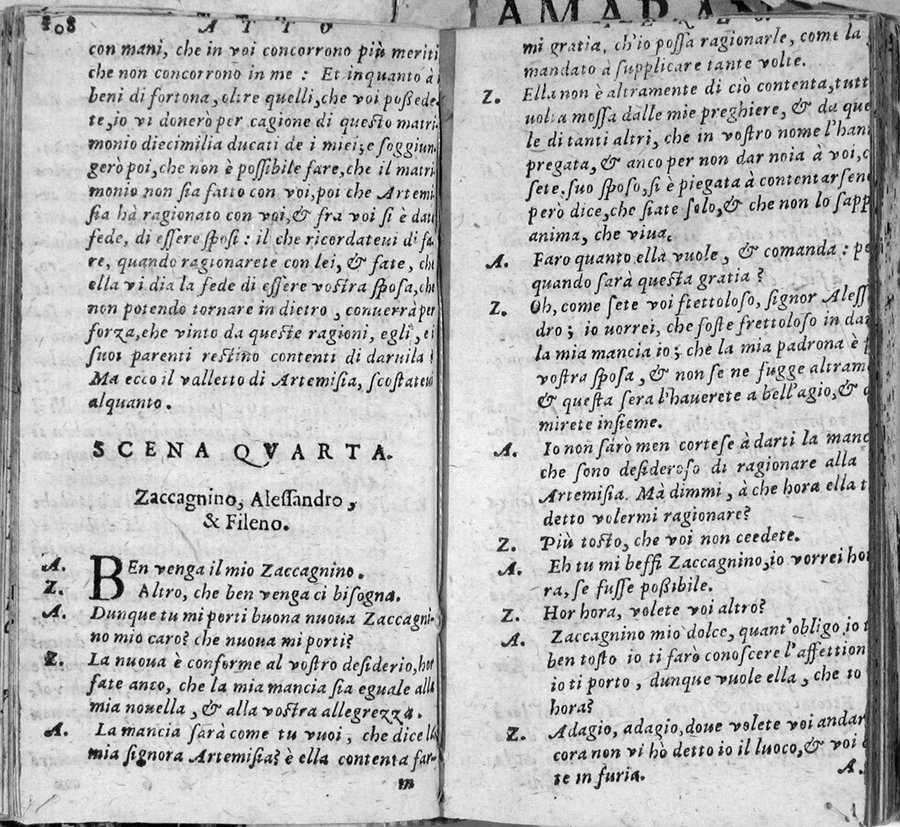 108 ATTO
con mani, che in voi concorrono più meriti
che non concorrono in me : Et inquanto à
beni di fortona, oltre quelli, che voi possede
te, io vi donerò per cagione di questo matri
monio diecimilia ducati de i miei; e soggiun
gerò poi, che non è possibile fare, che il matri
monio non sia fatto con voi, poi che Artemi
sia hà ragionato con voi, & fra voi si è data
fede, di essere sposi : il che ricordateui di fa
re, quando ragionarete con lei, & fate, che
ella vi dia la fede di essere vostra sposa, che
non potendo tornare in dietro, conuerrà per
forza, che vinto da queste ragioni, egli, ei
suoi parenti restino contenti di daruila !
Ma ecco il valletto di Artemisia, scostateui
alquanto.
SCENA QVARTA.
Zaccagnino, Alessandro,
& Fileno.
A. BEn venga il mio Zaccagnino.
Z. Altro, che ben venga ci bisogna.
A. Dunque tu mi porti buona nuoua Zaccagni-
no mio caro? che nuoua mi porti?
Z. La nuoua è conforme al vostro desiderio, hor
fate anco, che la mia mancia sia eguale alla
mia nouella, & alla vostra allegrezza.
A. La mancia sarà come tu vuoi, che dice la
mia signora Artemisia? è ella contenta far-
m
mi gratia, ch'io possa ragionarle, come la
mandato à supplicare tante volte.
Z. Ella non è altramente di ciò contenta, tutt
uolta mossa dalle mie preghiere, & da que
le di tanti altri, che in vostro nome l'han
pregata, & anco per non dar noia à voi, c
sete, suo sposo, si è piegata à contentarsene
però dice, che siate solo, & che non lo sapp
anima, che viua.
A. Faro quanto ella vuole, & comanda : pe
quando sarà questa gratia ?
Z. Oh, come sete voi frettoloso, signor Aless
dro; io uorrei, che foste frettoloso in dar
la mia mancia io; che la mia padrona è
vostra sposa, & non se ne fugge altram
& questa sera l'hauerete a bell'agio, & d
mirete insieme.
A. Io non sarò men cortese à darti la manc
che sono desideroso di ragionare alla
Artemisia. Mà dimmi, à che hora ella t
detto volermi ragionare?
Z. Più tosto, che voi non ceedete.
A. Eh tu mi beffi Zaccagnino, io vorrei hor
ra, se fusse possibile.
Z. Hor hora, volete voi altro?
A. Zaccagnino mio dolce, quant'obligo io t
ben tosto io ti farò conoscere l'affettion
io ti porto, dunque vuole ella, che io
hora?
Z. Adagio, adagio, doue volete voi andar
cora non vi hò detto io il luoco, & voi
te in furia.
A.